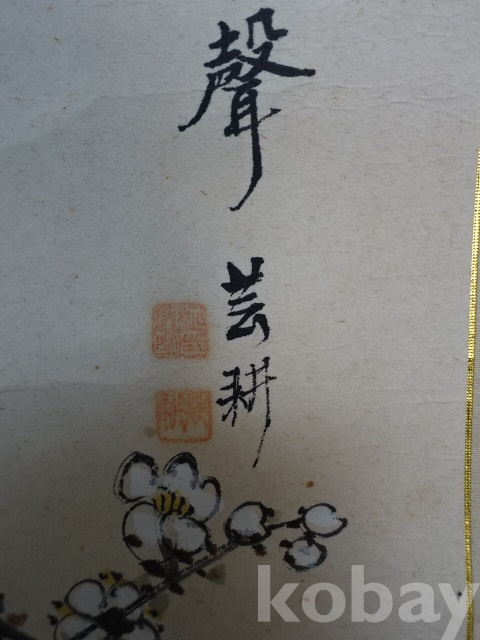 聲
芸耕
kobay